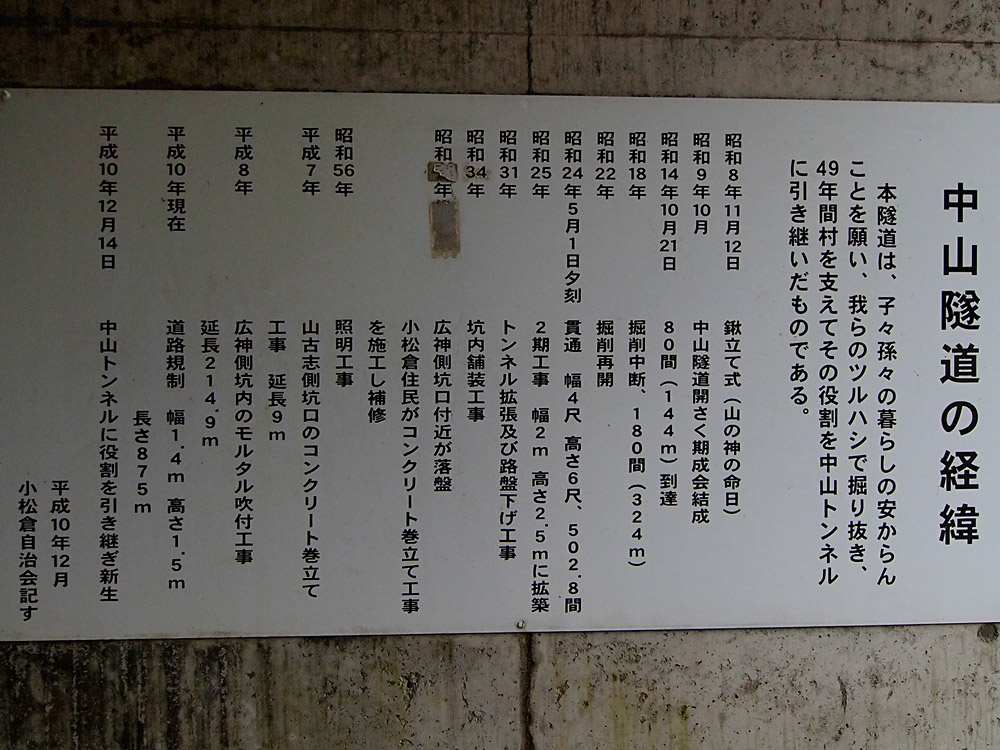 中山隧道の経緯
本隧道は、子々孫々の暮らしの安からん
ことを願い、我らのツルハシで掘り抜き、
49年間村を支えてその役割を中山トンネル
に引き継いだものである。
昭和8年11月12日 鍬立て式（山の神の命日）
昭和9年10月 中山隧道開さく期成会結成
昭和14年10月21日 80間（144m）到達
昭和18年 掘削中断、180間（324m）
昭和22年 掘削再開
昭和24年5月1日夕刻 貫通 幅4尺 高さ6尺、502.8間
昭和25年 2期工事 幅2m 高さ2.5mに拡築
昭和31年 トンネル拡張及び路盤下げ工事
昭和34年 坑内舗装工事
昭和 年 広神側坑口付近が落盤
小松倉住民がコンクリート巻立て工事
を施工し補修
昭和56年 照明工事
平成7年 山古志側坑口のコンクリート巻立て
工事 延長9m
平成8年 広神側坑内のモルタル吹付工事
延長214.9m
平成10年現在 道路規制 幅1.4m 高さ1.5m
長さ875m
平成10年12月14日 中山トンネルに役割を引き継ぎ新生
平成10年12月
小松倉自治会記す